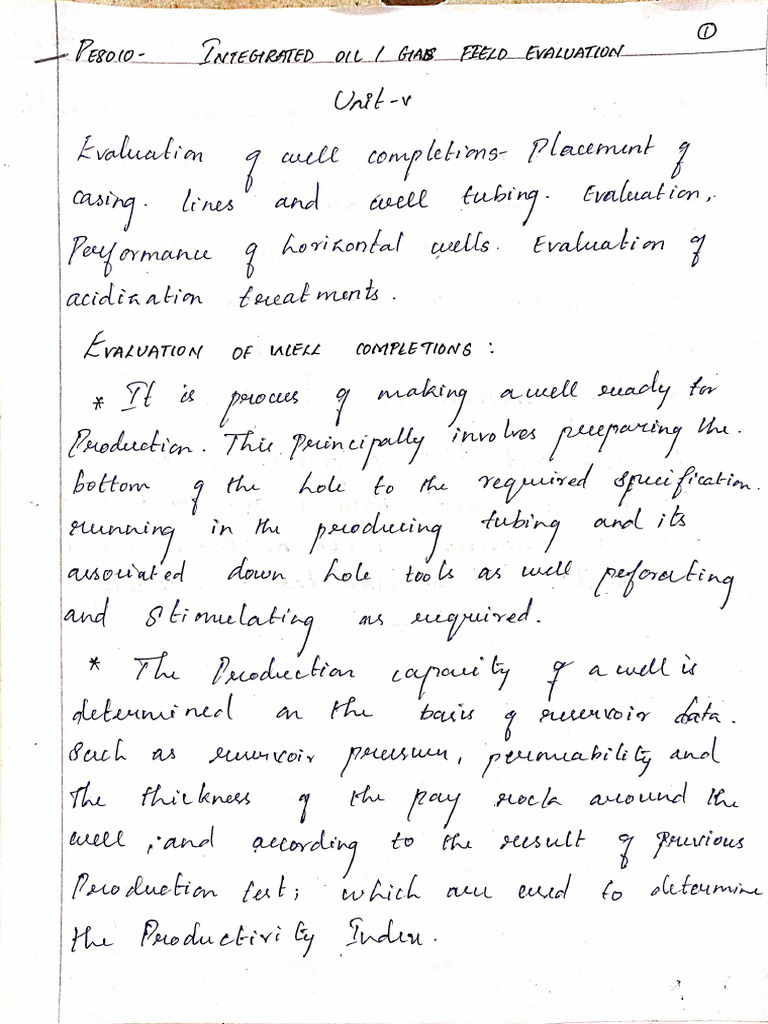 ①
PE8010- INTEGRATED OIL / GAS FIELD EVALUATION
Unit-v
Evaluation of well completions- Placement of
casing. lines and well tubing. Evaluation,
Performance of horizontal wells. Evaluation of
acidization treatments.
EVALUATION OF WELL COMPLETIONS :
* It is process of making a well ready for
Production. This principally involves preparing the.
bottom of the hole to the required specification.
running in the producing tubing and its
associated down hole tools as well peforating
and Stimulating as required.
* The Production capacity of a well is
determined on the basis of reservoir data.
Such as reservoir pressure, permeability and
the thickness of the pay rock around the
well, and according to the result of previous
Production test; which are used to determine
the Productivity Index.